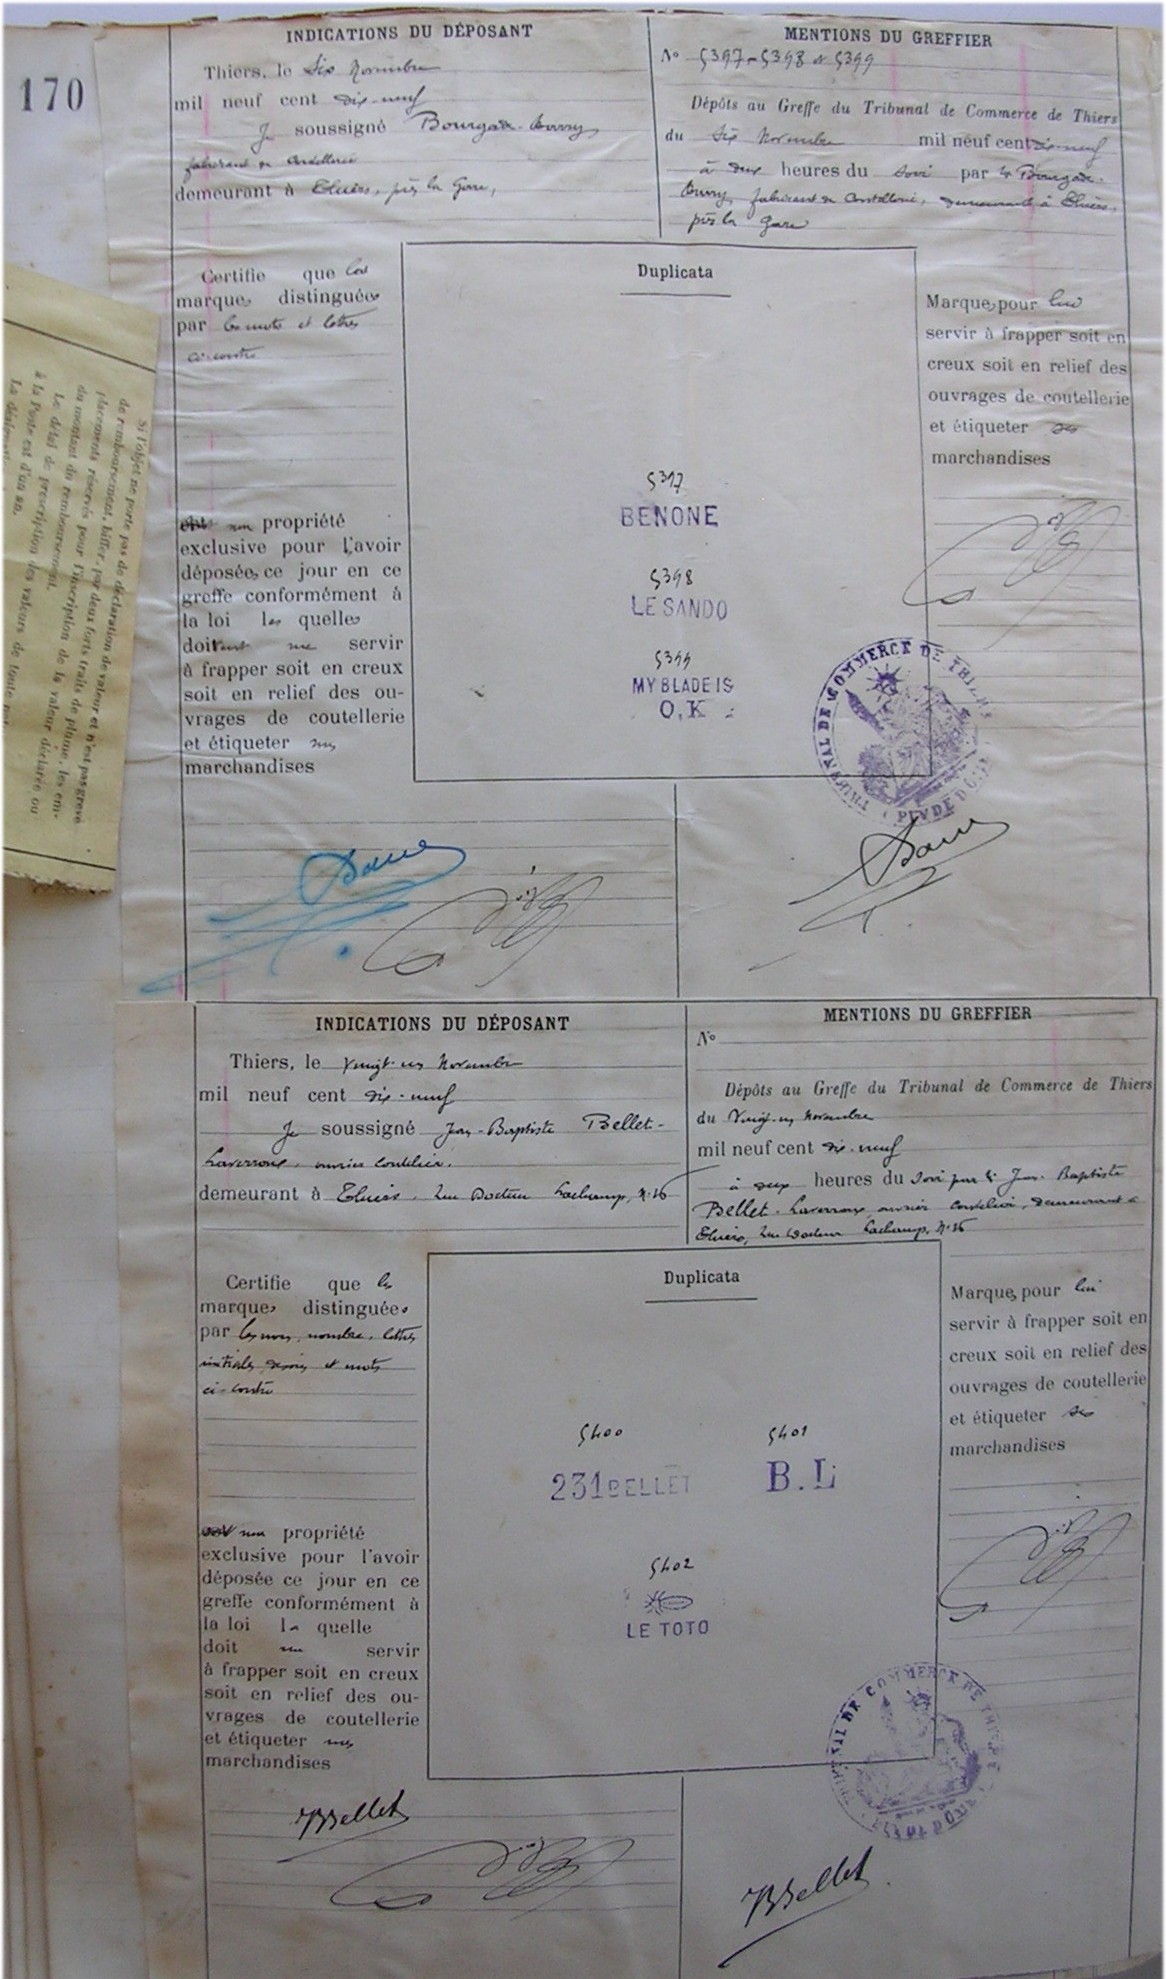 170
INDICATIONS DU DÉPOSANT
Thiers, le Six Novembre
mil neuf cent dix-neuf
Je soussigné Bourgade-
fabricant de coutellerie
demeurant à Thiers, près la Gare,
MENTIONS DU GREFFIER
No 5397-5398 & 5399
Dépôts au Greffe du Tribunal de Commerce de Thiers
du Six Novembre mil neuf cent dix-neuf
à deux heures du soir par Mr Bourgade-
fabricant de Coutellerie, demeurant à Thiers,
près la Gare
Certifie que les
marques distinguées
par les mots et lettres
ci-contre
sont ma propriété
exclusive pour l'avoir
déposées, ce jour en ce
greffe conformément à
la loi les quelles
doivent me servir
à frapper soit en creux
soit en relief des ou-
vrages de coutellerie
et étiqueter mes
marchandises
Duplicata
5397
BENONE
5398
LE SANDO
5399
MY BLADE IS
O.K
Marques pour lui
servir à frapper soit en
creux soit en relief des
ouvrages de coutellerie
et étiqueter ses
marchandises
TRIBUNAL DE COMMERCE DE THIERS
PUY DE DOME
Si l'objet ne porte pas de déclaration de valeur et n'est pas grevé
de remboursement, biffer, par deux forts traits de plume, les em-
placements réservés pour l'inscription de la valeur déclarée ou
du montant du remboursement.
Le délai de prescription des valeurs de toute
à la Poste est d'un an.
INDICATIONS DU DÉPOSANT
Thiers, le Vingt-un Novembre
mil neuf cent dix-neuf
Je soussigné Jean-Baptiste Bellet-
Laverroux, ouvrier coutelier.
demeurant à Thiers, rue Docteur Lachamp, N. 16
MENTIONS DU GREFFIER
No
Dépôts au Greffe du Tribunal de Commerce de Thiers
du Vingt-un Novembre
mil neuf cent dix-neuf
à deux heures du soir par Mr Jean-Baptiste
Bellet-Laverroux, ouvrier coutelier, demeurant à
Thiers, rue Docteur Lachamp, N. 16
Certifie que les
marques distinguées
par les nom, nombre, lettres
initiales, dessin et mots
ci-contre
sont ma propriété
exclusive pour l'avoir
déposée ce jour en ce
greffe conformément à
la loi la quelle
doit me servir
à frapper soit en creux
soit en relief des ou-
vrages de coutellerie
et étiqueter mes
marchandises
Duplicata
5400
231 BELLET
5401
B.L
5402
LE TOTO
Marques pour lui
servir à frapper soit en
creux soit en relief des
ouvrages de coutellerie
et étiqueter ses
marchandises
TRIBUNAL DE COMMERCE DE THIERS
JBBellet
JBBellet